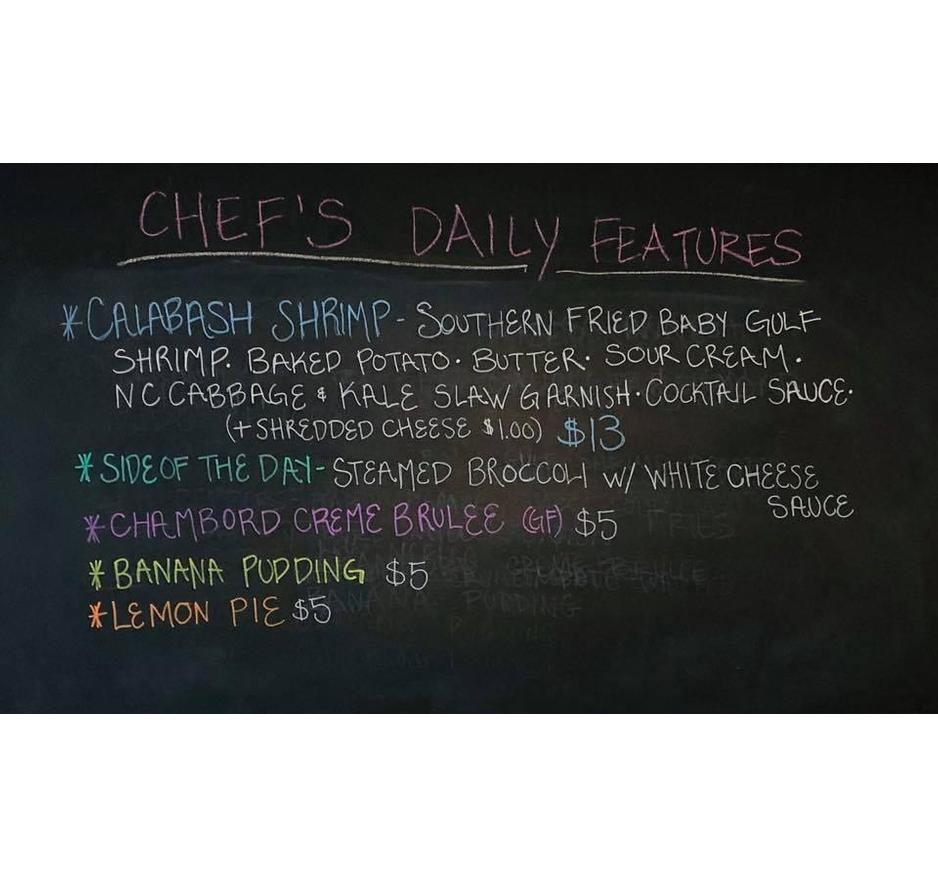 CHEF'S DAILY FEATURES
*CALABASH SHRIMP - SOUTHERN FRIED BABY GULF
SHRIMP. BAKED POTATO · BUTTER · SOUR CREAM ·
NC CABBAGE & KALE SLAW GARNISH · COCKTAIL SAUCE ·
(+ SHREDDED CHEESE $1.00) $13
*SIDE OF THE DAY - STEAMED BROCCOLI W/ WHITE CHEESE
SAUCE
*CHAMBORD CREME BRULEE (GF) $5
*BANANA PUDDING $5
*LEMON PIE $5